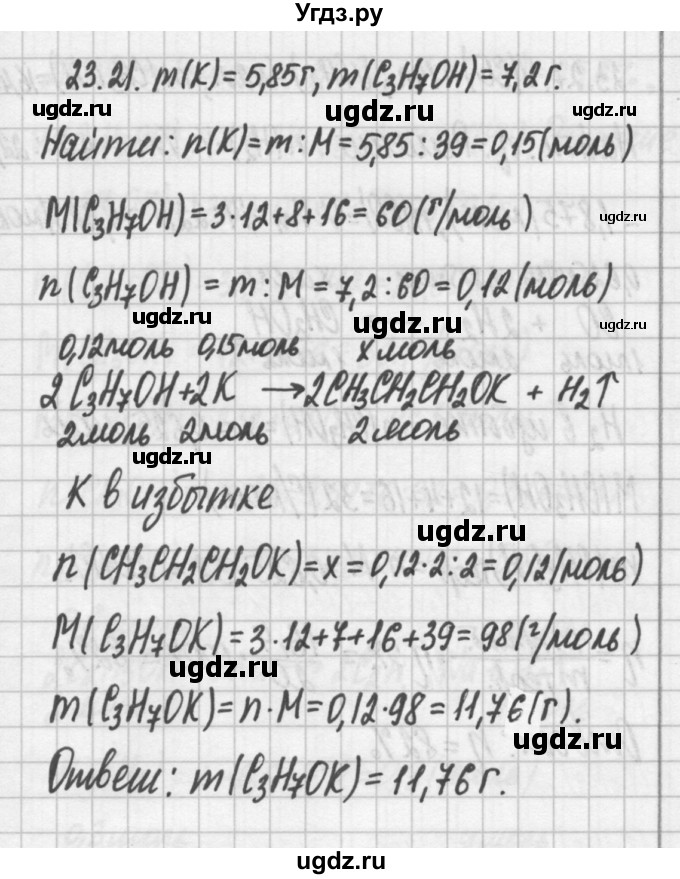 Угдз.ру
23.21. m(К) = 5,85г, m(C₃H₇OH) = 7,2г.
ugdz.ru ugdz.ru ugdz.ru
Найти: n(К) = m : M = 5,85 : 39 = 0,15(моль)
M(C₃H₇OH) = 3·12+8+16 = 60(г/моль)
ugdz.ru
n(C₃H₇OH) = m : M = 7,2 : 60 = 0,12(моль)
ugdz.ru ugdz.ru ugdz.ru
0,12моль 0,15моль x моль
2C₃H₇OH + 2K → 2CH₃CH₂CH₂OK + H₂↑
2моль 2моль 2моль
ugdz.ru
К в избытке
ugdz.ru
n(CH₃CH₂CH₂OK) = x = 0,12·2:2 = 0,12(моль)
M(C₃H₇OK) = 3·12+7+16+39 = 98(г/моль)
ugdz.ru
m(C₃H₇OK) = n·M = 0,12·98 = 11,76(г).
ugdz.ru
Ответ: m(C₃H₇OK) = 11,76г.
ugdz.ru
ugdz.ru